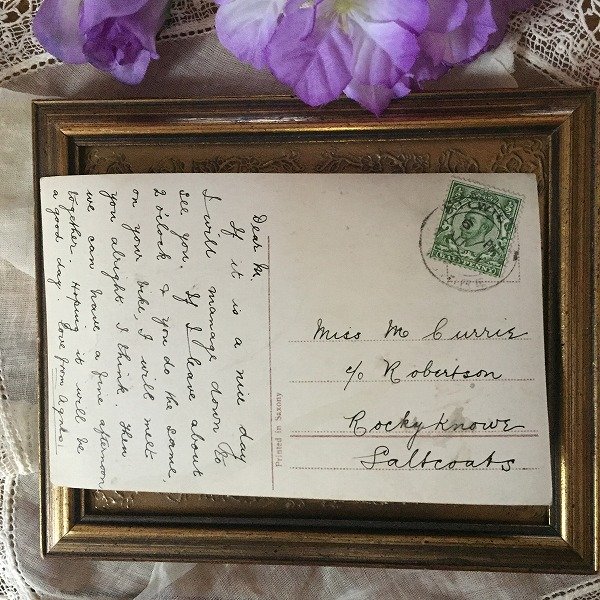 Dear M.
If it is a nice day
I will manage down to
see you. If I leave about
2 o'clock & you do the same,
on your bike, I will meet
you alright I think. Then
we can have a fine afternoon
together. Hoping it will be
a good day. Love from Agnes
Printed in Saxony
Miss M Currie
c/o Robertson
Rockyknowe
Saltcoats